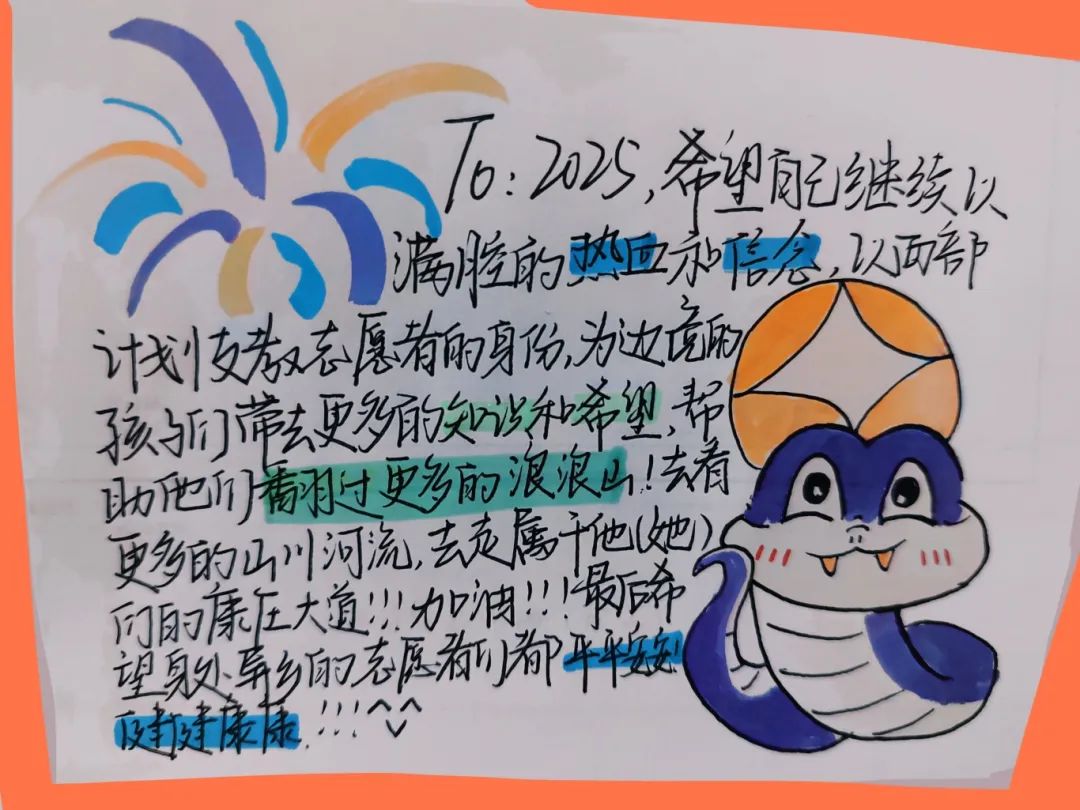 To：2025，希望自己继续以
满腔的热血和信念，以西部
计划支教志愿者的身份，为边境的
孩子们带去更多的知识和希望，帮
助他们翻过更多的浪浪山！去看
更多的山川河流，去走属于他（她）
们的康庄大道！！！加油！！！最后希
望身处异乡的志愿者们都平平安安
健健康康！！！^v^